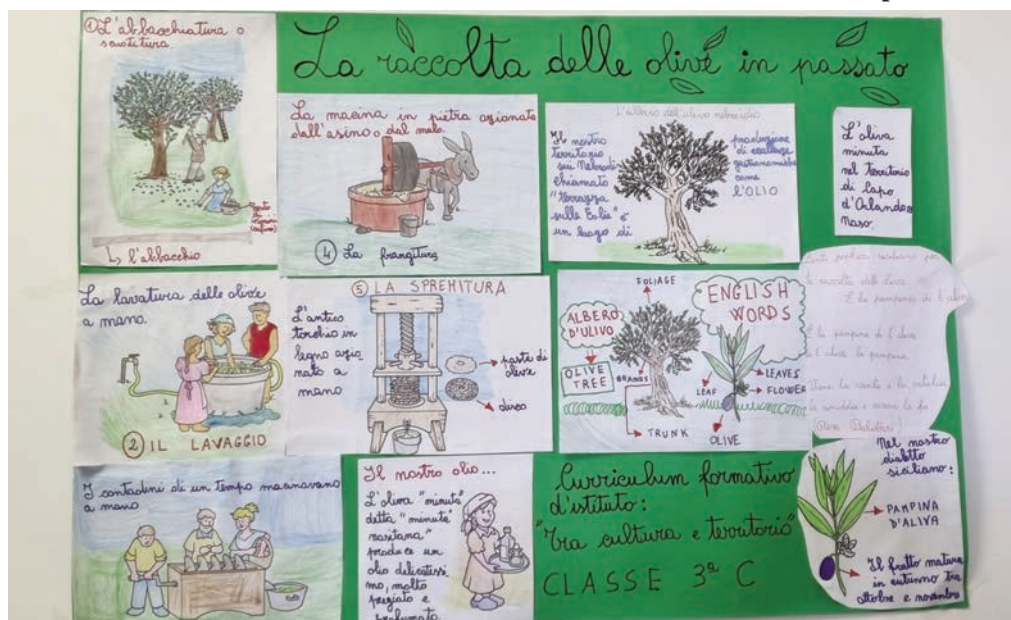 La raccolta delle olive in passato
① L'abbacchiatura o
scuotitura
↳ l'abbacchio
La macina in pietra azionata
dall'asino o dal mulo.
④ La frangitura
L'albero dell'ulivo nebroideo
Il nostro
territorio
sui Nebrodi
chiamato
"terrazza
sulle Eolie" è
un luogo di
produzione
di eccellenze
gastronomiche
come
l'OLIO
L'oliva
minuta
nel territorio
di Capo
d'Orlando e
Naso.
La lavatura delle olive
a mano.
② IL LAVAGGIO
⑤ LA SPREMITURA
L'antico
torchio in
legno azio
nato a
mano
pasta di
olive
disco
ALBERO
D'ULIVO
OLIVE
TREE
FOLIAGE
ENGLISH
WORDS
LEAF
LEAVES
FLOWER
TRUNK
OLIVE
I contadini di un tempo macinavano
a mano
Il nostro olio...
L'oliva "minuta"
detta "minuta
nasitana"
produce un
olio delicatissi
mo, molto
pregiato e
profumato.
Curriculum formativo
d'istituto:
"Tra cultura e territorio"
CLASSE 3ª C
Nel nostro
dialetto
siciliano:
PAMPINA
D'ALIVA
Il frutto matura
in autunno tra
ottobre e novembre